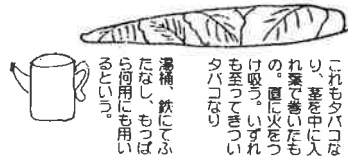 これもタバコな
り、茎を中に入
れ葉で巻いたも
の。直に火をつ
け吸う。いずれ
も至ってきつい
タバコなり
湯桶、鉄にてふ
たなし、もっぱ
ら何用にも用い
るという。